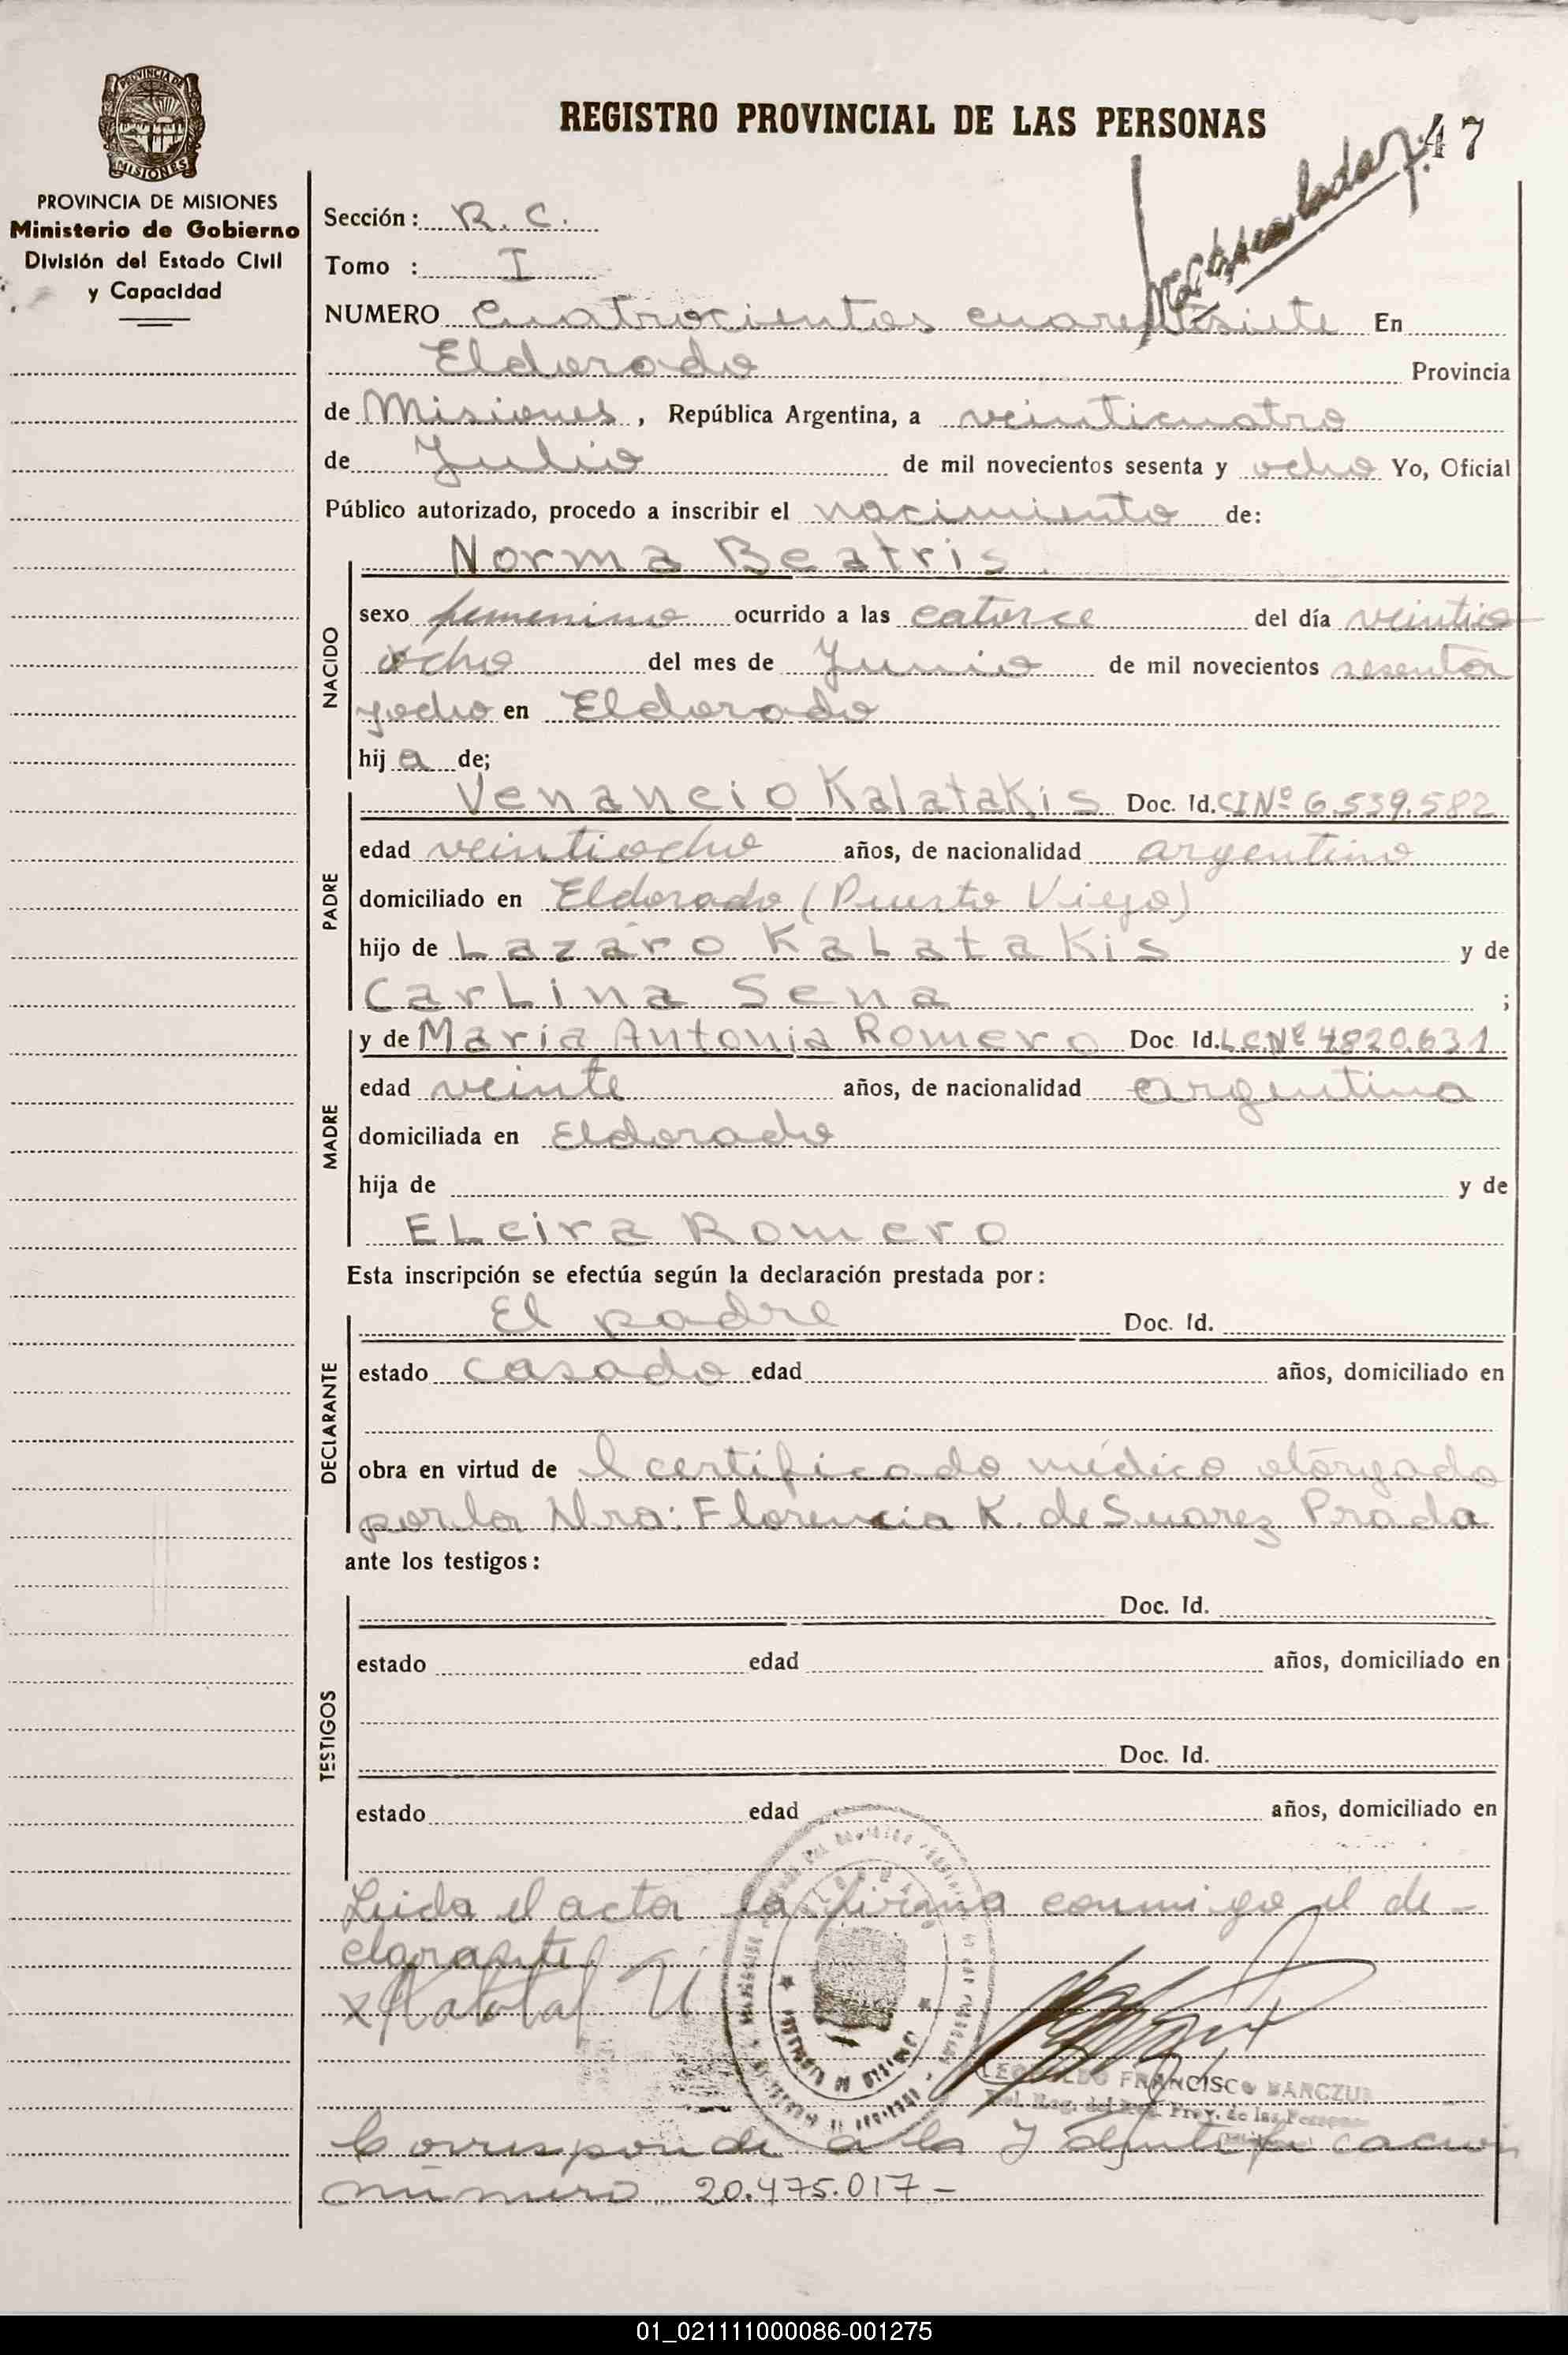 PROVINCIA DE
MISIONES
PROVINCIA DE MISIONES
Ministerio de Gobierno
División del Estado Civil
y Capacidad
REGISTRO PROVINCIAL DE LAS PERSONAS
47
Sección: R. C.
Tomo : I
NUMERO Cuatrocientos cuarentisiete En
Eldorado Provincia
de Misiones, República Argentina, a veinticuatro
de Julio de mil novecientos sesenta y ocho Yo, Oficial
Público autorizado, procedo a inscribir el nacimiento de:
Norma Beatris
NACIDO
sexo femenino ocurrido a las catorce del día veintio
ocho del mes de Junio de mil novecientos sesenta
yocho en Eldorado
hij a de;
PADRE
Venancio Kalatakis Doc. Id. CINº 6.539.582
edad veintiocho años, de nacionalidad argentino
domiciliado en Eldorado (Puerto Viejo)
hijo de Lazaro Kalatakis y de
Carlina Sena ;
MADRE
y de María Antonia Romero Doc. Id. L.C.Nº 4820.631
edad veinte años, de nacionalidad argentina
domiciliada en Eldorado
hija de y de
Elcira Romero
Esta inscripción se efectúa según la declaración prestada por:
DECLARANTE
El padre Doc. Id.
estado casado edad años, domiciliado en
obra en virtud de l certificado médico otorgado
por la Dra: Florencia K. de Suarez Prada
ante los testigos:
TESTIGOS
Doc. Id.
estado edad años, domiciliado en
Doc. Id.
estado edad años, domiciliado en
Leida el acta la firma conmigo el de-
clarante
FRANCISCO
Prov. de las
Corresponde a la Identificacion
número 20.475.017-
01_021111000086-001275